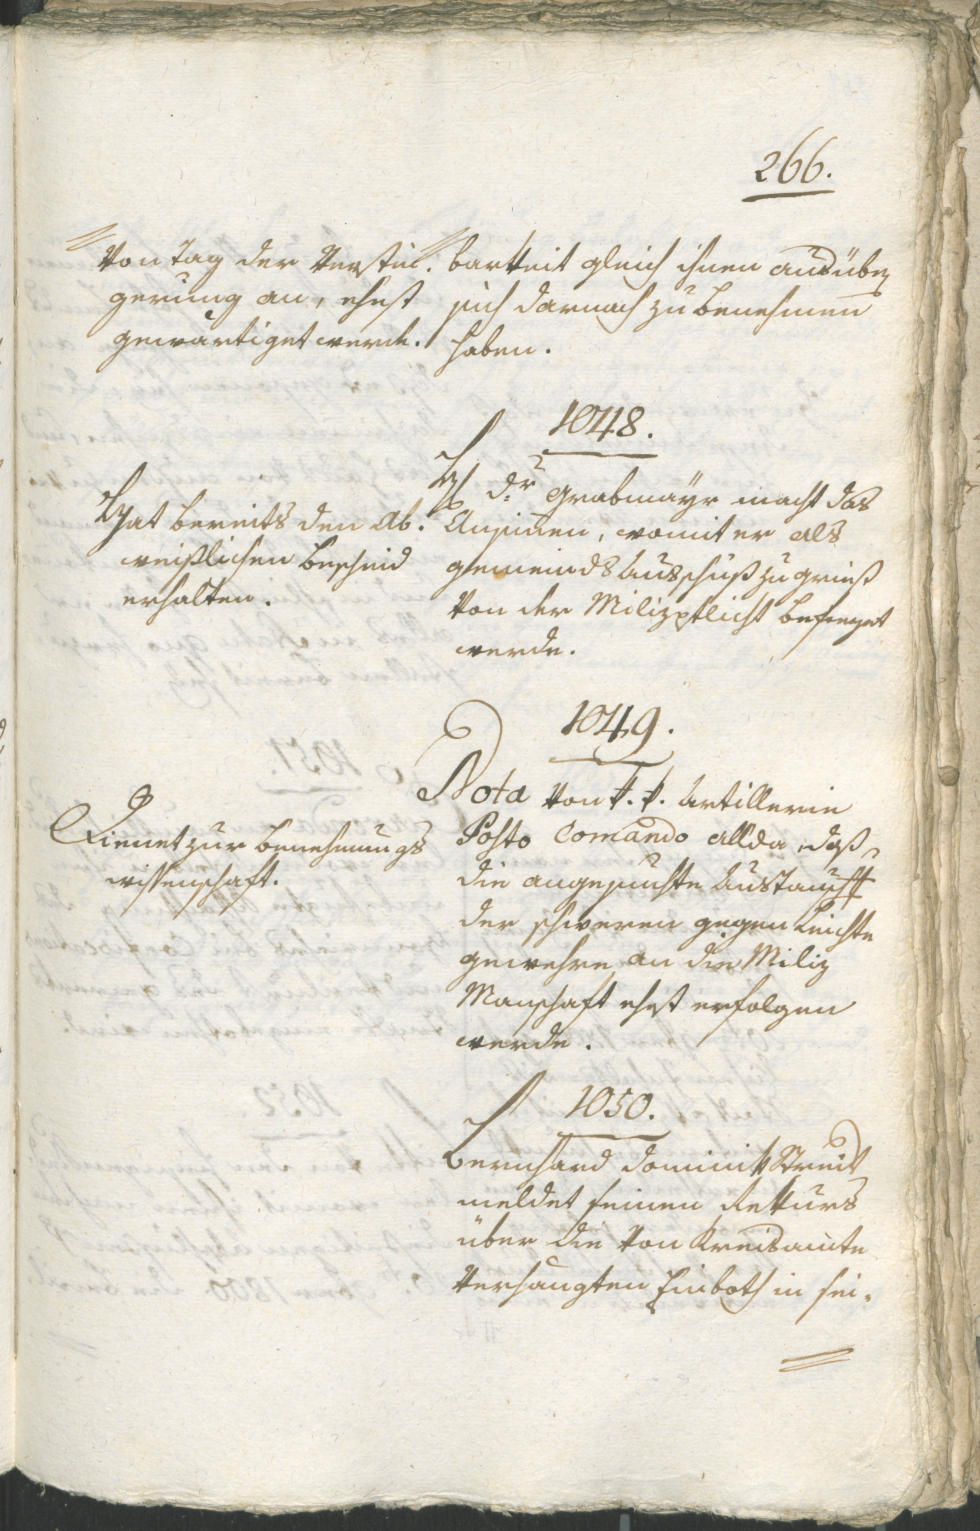 266.
Von Tag der Verstei-
gerung an, ehest
gewärtiget werde.
barkeit gleich ihnen auszuüben
sich darnach zu benehmen
haben.
1048.
Hat bereits den Ab-
weislichen Bescheid
erhalten.
H. Dr. Grabmayr macht das
Ansinnen, womit er als
Gemeinds Ausschuß zu Grieß
von der Milizpflicht befreyet
werde.
1049.
Dienet zur Benehmungs
wissenschaft.
Nota von k. k. Artillerie
Posto Comando allda, daß
die angesuchte Austausch
der schweren gegen leichte
Gewehre an die Miliz
Manschaft ehest erfolgen
werde.
1050.
Bernhard Dominik Streit
meldet seinen Rekurs
über die von Kreisamte
verhängten Einboth in sei-